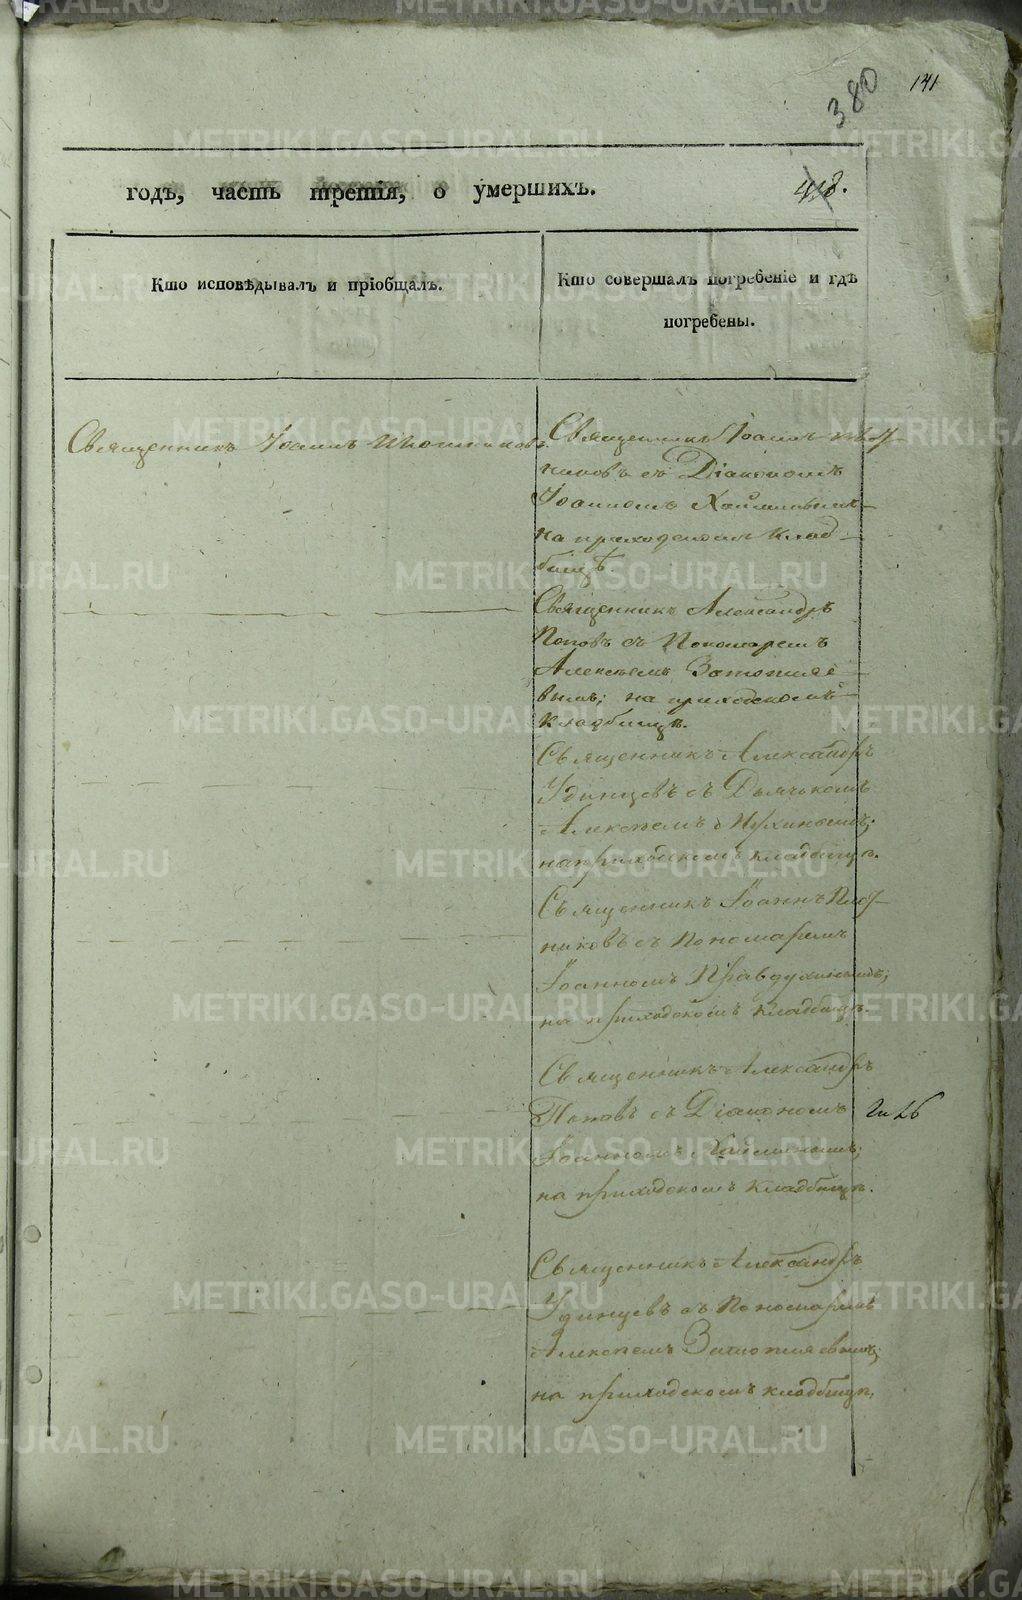 141
380
418.
годъ, часть третія, о умершихъ.
Кто исповѣдывалъ и пріобщалъ.
Кто совершалъ погребеніе и гдѣ
погребены.
Священникъ Іоаннъ
Священникъ Іоаннъ
никовъ съ Діакономъ
Іоанномъ
на приходскомъ клад-
бищѣ.
Священникъ Александръ
Поповъ съ Пономаремъ
Алексѣемъ
вымъ; на приходскомъ
кладбищѣ.
Священникъ Александръ
Удинцевъ съ Дьячкомъ
Алексѣемъ
на приходскомъ кладбищѣ.
Священникъ Іоаннъ Плот-
никовъ съ Пономаремъ
Іоанномъ Правдухинымъ;
на приходскомъ кладбищѣ.
Священникъ Александръ
Поповъ съ Діакономъ
Іоанномъ
на приходскомъ кладбищѣ.
Священникъ Александръ
Удинцевъ съ Пономаремъ
Алексѣемъ
на приходскомъ кладбищѣ.
METRIKI.GASO-URAL.RU